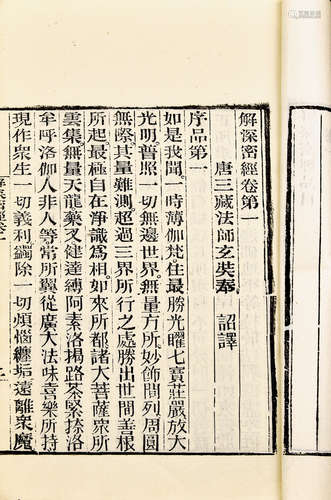 解深密經卷第一
唐三藏法師玄奘奉 詔譯
序品第一
如是我聞一時薄伽梵住最勝光曜七寶莊嚴放大
光明普照一切無邊世界無量方所妙飾間列周圓
無際其量難測超過三界所行之處勝出世間善根
所起最極自在淨識為相如來所都諸大菩薩眾所
雲集無量天龍藥叉健達縛阿素洛揭路茶緊捺洛
牟呼洛伽人非人等常所翼從廣大法味喜樂所持
現作眾生一切義利蠲除一切煩惱纏垢遠離眾魔